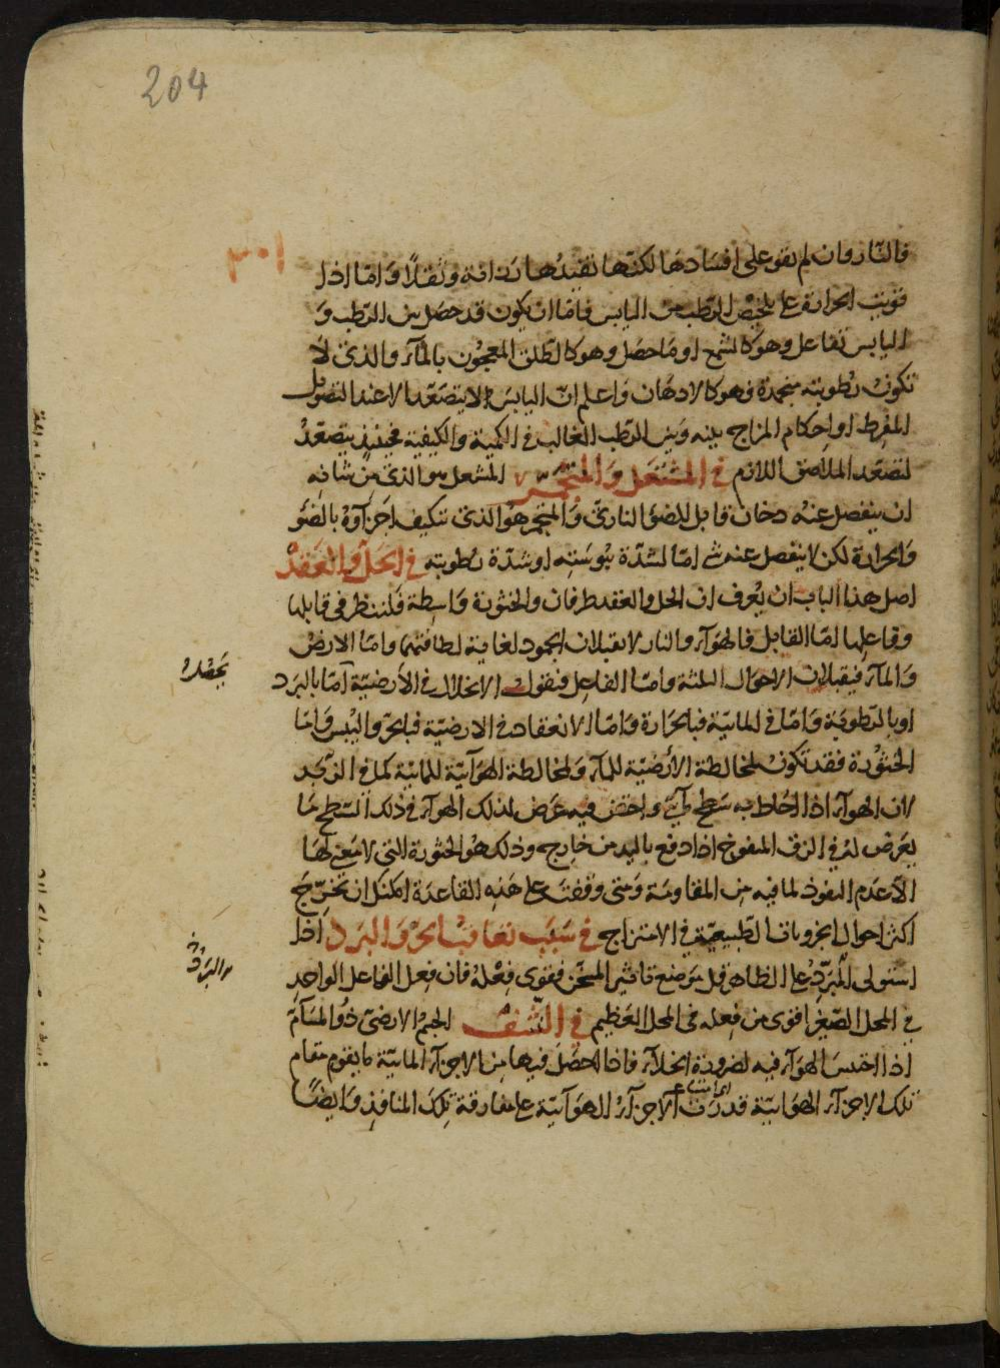 204
٣٠١
فالنار وان لم تقو على افسادها لكنها تفيدها رزانة وثقلا واما اذا
قويت الحرارة على تلخيص الرطب من اليابس فاما ان يكون قد حصل من الرطب و
اليابس تفاعل وهو كالشمع او ما حصل وهو كالطلق المعجون بالمآء والذى لا
تكون رطوبته منجمدة وهو كالادهان واعلم ان اليابس لا يتصعد الا عند التصول
المفرط او احكام المزاج بينه وبين الرطب الغالب فى الكمية والكيفية فحينئذ يتصعد
لتصعد الملاصق اللازم فى المشتعل والمتجمر المشعل هو الذى من شانه
ان ينفصل عنه دخان قابل للضؤ النارى والمتجمر هو الذى تتكيف اجزآؤه بالضؤ
والحرارة لكن لا ينفصل عنه شئ اما لشدة يبوسته او شدة رطوبته فى الحل والعقد
اصل هذا الباب ان يعرف ان الحل والعقد طرفان والخثورة واسطة فلننظر فى قابلها
وفاعلها اما القابل فالهوآء والنار لا يقبلان الجمود لغاية لطافتهما واما الارض
والمآء فيقبلان الاحوال الثلثة واما الفاعل فنقول الانحلال فى الارضية اما بالبرد
او بالرطوبة واما فى المائية فبالحرارة واما الانعقاد فى الارضية فبالحر واليبس واما
الخثورة فقد تكون لمخالطة الارضية للمآء ولمخالطة الهوآئية للمائية كما فى الزبد
لان الهوآء اذا احاط به سطح مآئى واحتقن فيه عرض لذلك الهوآء فى ذلك السطح ما
يعرض له فى الزق المنفوخ اذا دفع باليد من خارجه وذلك هو الخثورة التى لا معنى لها
الا عدم النفوذ لما فيه من المقاومة ومتى وقفت على هذه القاعدة امكنك ان تخرج
اكثر احوال الجزويات الطبيعية فى الامتزاج فى سبب تعاقب الحر والبرد اذا
استولى المبرد على الظاهر قل موضع تاثير المسخن فقوى فعله فان فعل الفاعل الواحد
فى المحل الصغير اقوى من فعله فى المحل العظيم فى النشف الجسم الارضى ذو المسآم
اذا احتبس الهوآء فيه لضرورة الخلآء فاذا حصل فيها من الاجزآء المائية ما يقوم مقام
تلك الاجزآء الهوائية قدرت الاجزآء الهوآئية على مفارقة تلك المنافذ وايضا